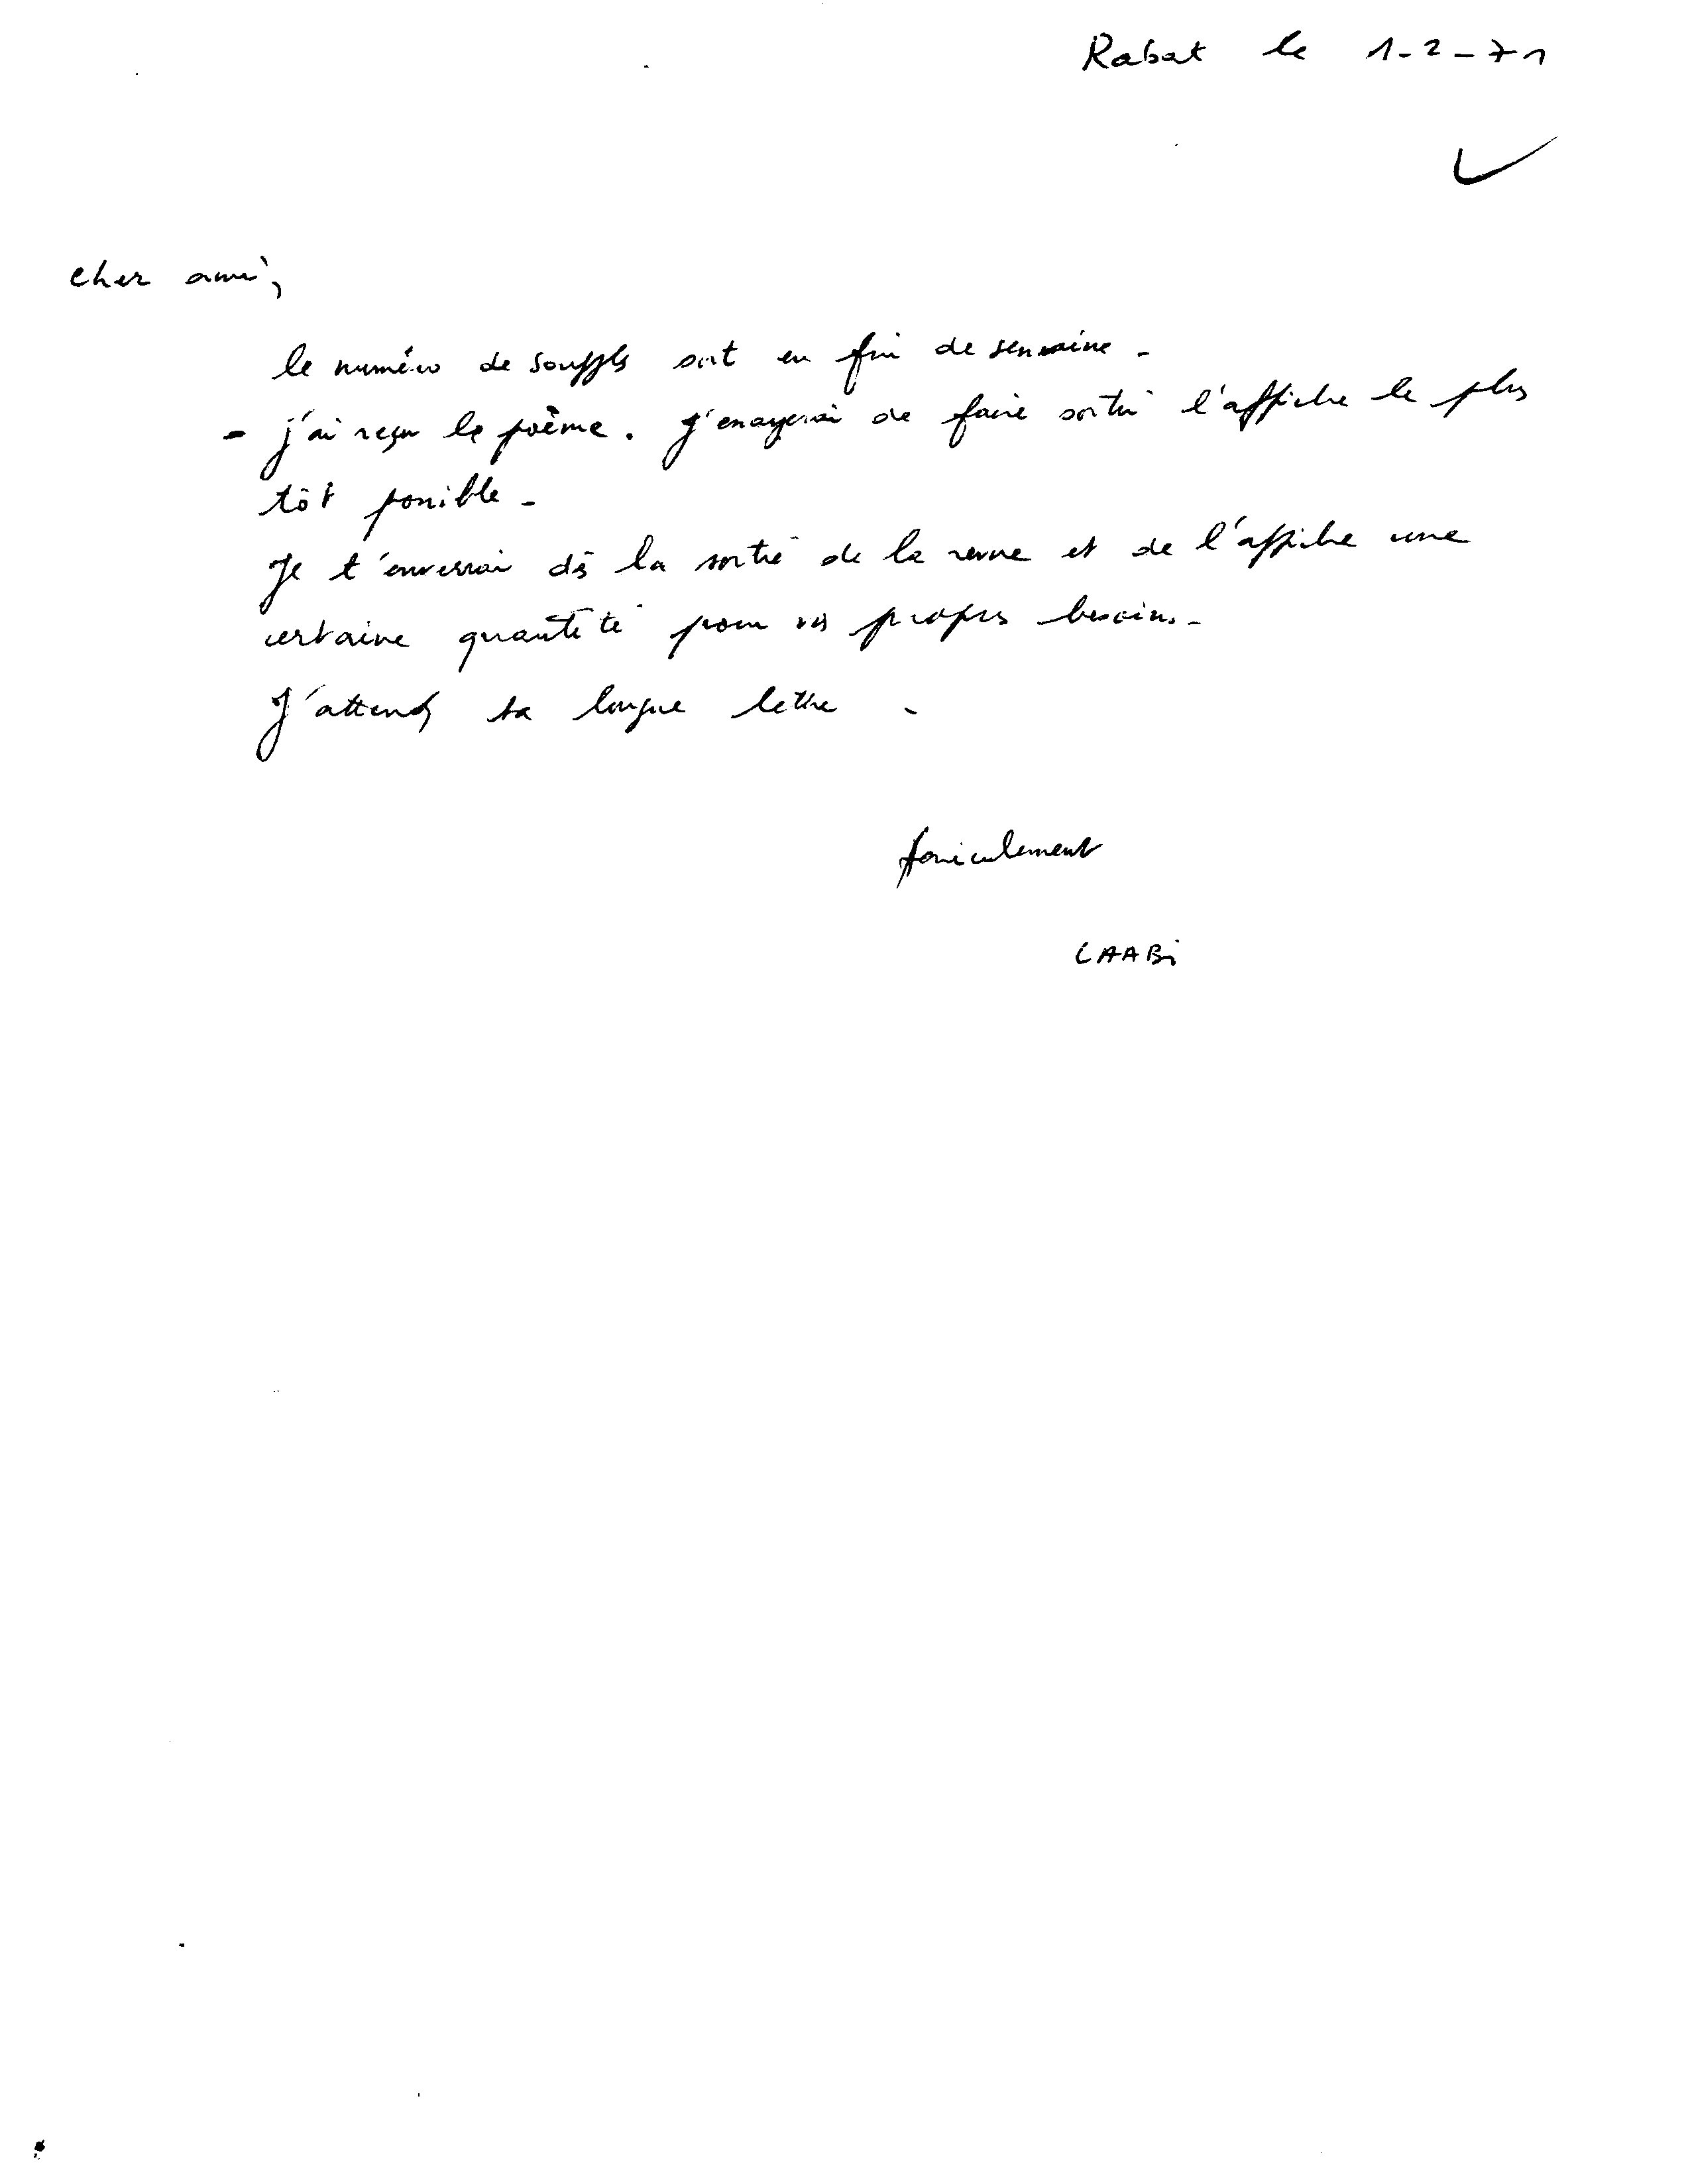 Rabat le 1-2-71
cher ami,
le numéro de souffles sort en fin de semaine -
- j'ai reçu le poème. J'essayerai de faire sortir l'affiche le plus
tôt possible -
Je t'enverrai dès la sortie de la revue et de l'affiche une
certaine quantité pour vos propres besoins. -
J'attends ta longue lettre -
LAABi